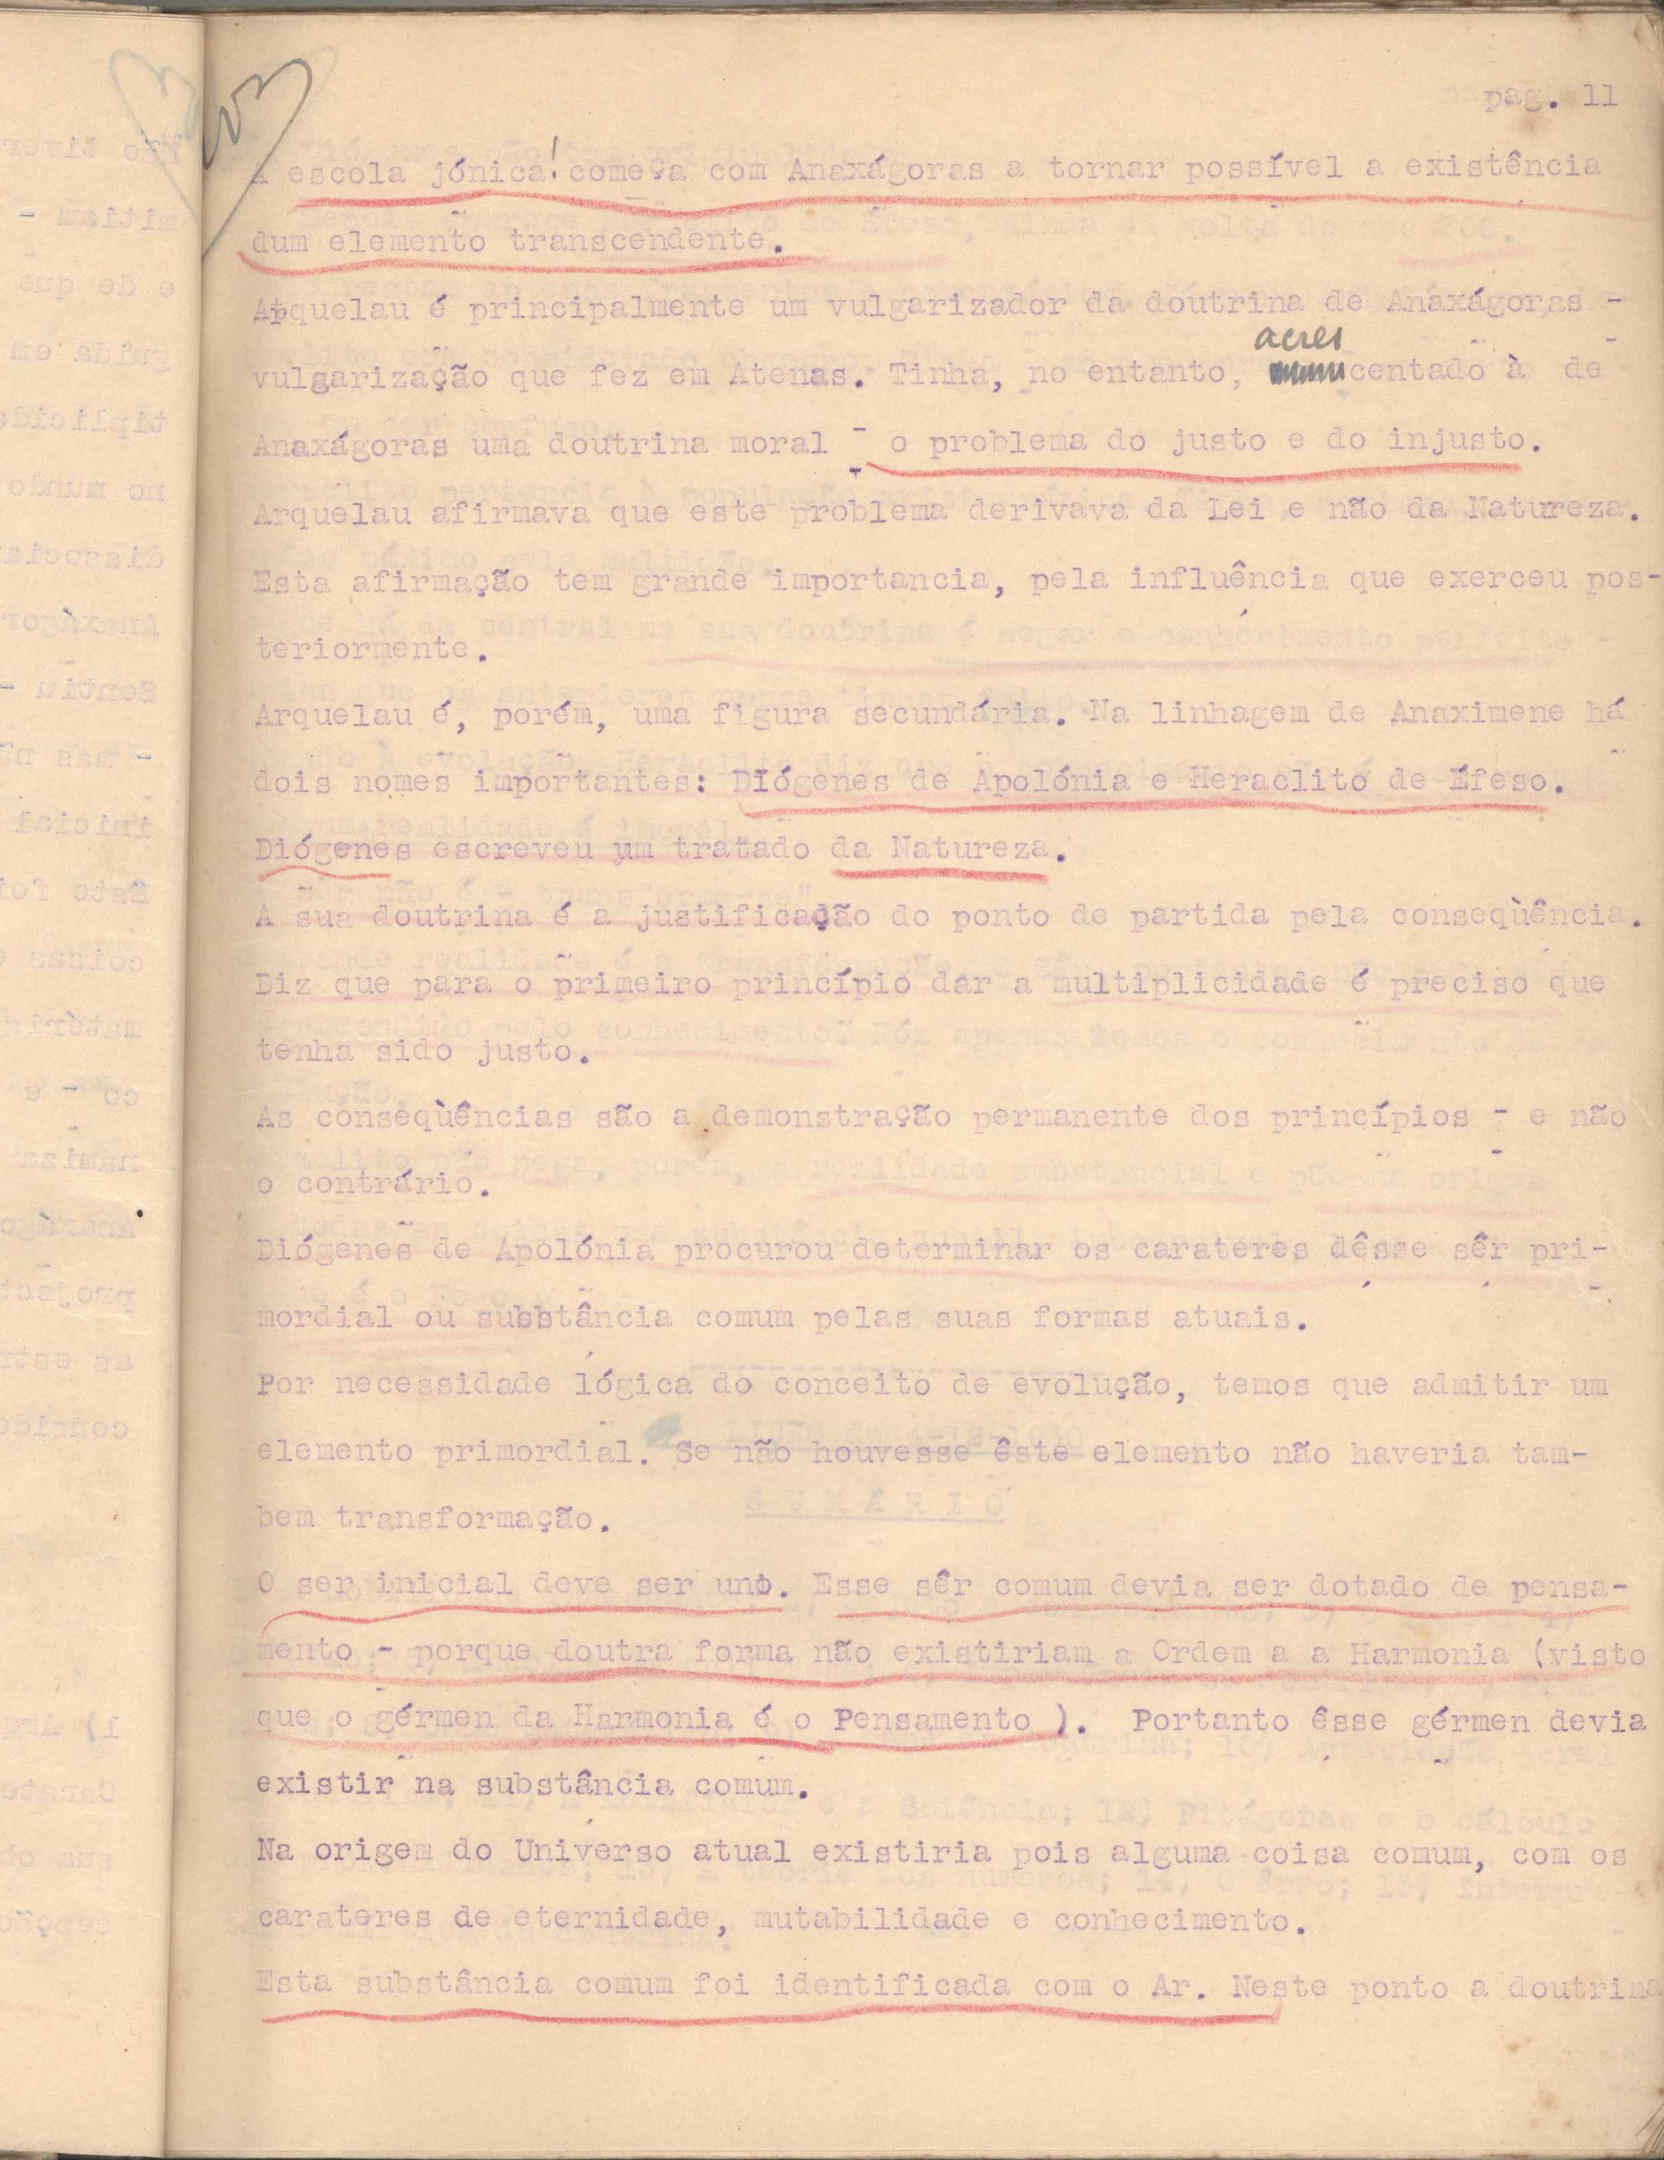 pag. 11
A escola jónica! começa com Anaxágoras a tornar possível a existência
dum elemento transcendente.
Arquelau é principalmente um vulgarizador da doutrina de Anaxágoras -
vulgarização que fez em Atenas. Tinha, no entanto, acrescentado à de
Anaxágoras uma doutrina moral - o problema do justo e do injusto.
Arquelau afirmava que este problema derivava da Lei e não da Natureza.
Esta afirmação tem grande importancia, pela influência que exerceu pos-
teriormente.
Arquelau é, porém, uma figura secundária. Na linhagem de Anaximene há
dois nomes importantes: Diógenes de Apolónia e Heraclito de Éfeso.
Diógenes escreveu um tratado da Natureza.
A sua doutrina é a justificação do ponto de partida pela conseqùência.
Diz que para o primeiro princípio dar a multiplicidade é preciso que
tenha sido justo.
As conseqùências são a demonstração permanente dos princípios - e não
o contrário.
Diógenes de Apolónia procurou determinar os carateres dêsse sêr pri-
mordial ou substância comum pelas suas formas atuais.
Por necessidade lógica do conceito de evolução, temos que admitir um
elemento primordial. Se não houvesse êste elemento não haveria tam-
bem transformação.
O ser inicial deve ser uno. Esse sêr comum devia ser dotado de pensa-
mento - porque doutra forma não existiriam a Ordem a a Harmonia (visto
que o gérmen da Harmonia é o Pensamento ). Portanto êsse gérmen devia
existir na substância comum.
Na origem do Universo atual existiria pois alguma coisa comum, com os
carateres de eternidade, mutabilidade e conhecimento.
Esta substância comum foi identificada com o Ar. Neste ponto a doutrina